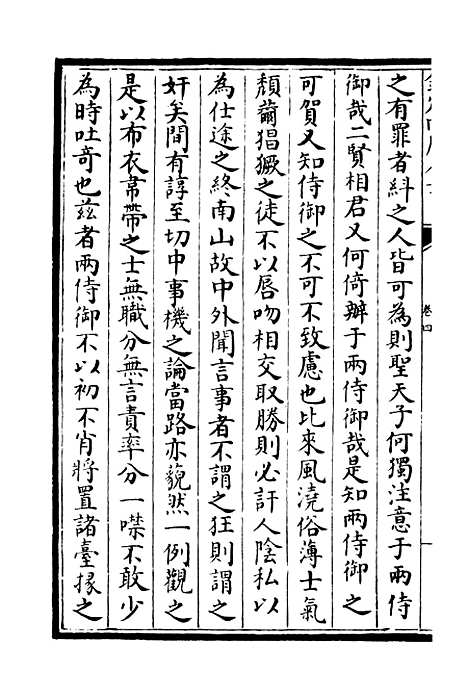 之有罪者糾之人皆可為則聖天子何獨注意于兩侍
御哉二賢相君又何倚辦于兩侍御哉是知兩侍御之
可賀又知侍御之不可不致慮也比來風澆俗薄士氣
頹薾猖獗之徒不以唇吻相交取勝則必訐人陰私以
為仕途之終南山故中外聞言事者不謂之狂則謂之
奸矣間有諄至切中事機之論當路亦藐然一例觀之
是以布衣韋帶之士無職分無言責率分一噤不敢少
為時吐奇也茲者兩侍御不以初不肖將置諸臺掾之
卷四